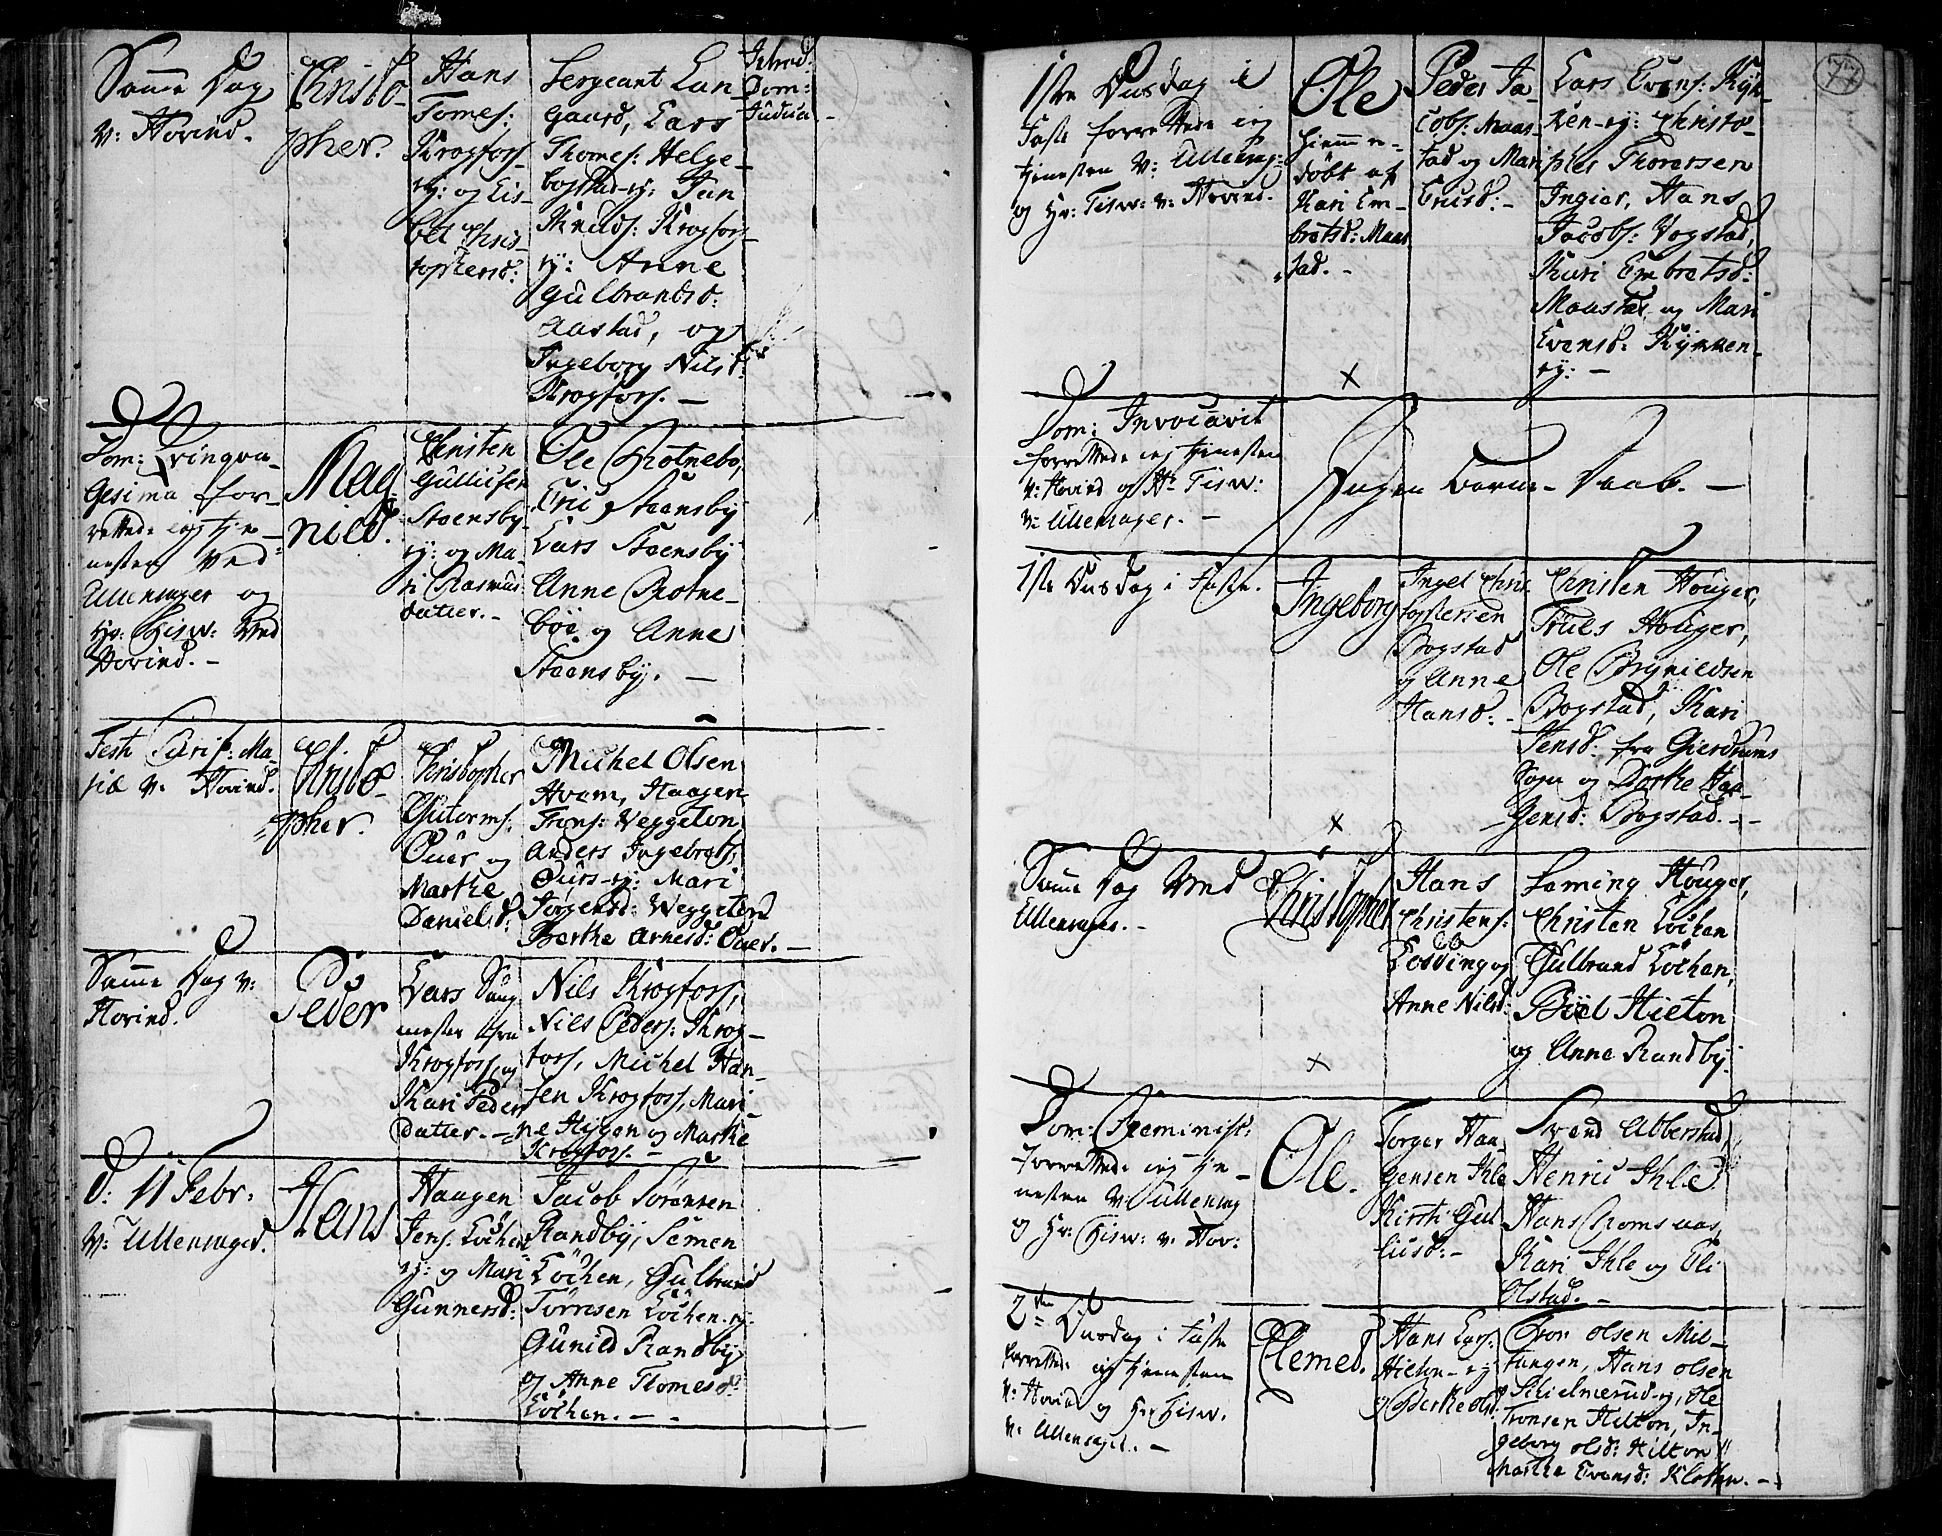 Samme Dag
v: Hovind.
Christo-
pher.
Hans
Tomes:
Krogfoss-
ej: og Lis-
bet Chris-
tophersd:
Sergeant Lun-
gaard, Lars
Thomes: Helge-
bogstad-ej: Jan
Knuds: Krogfos-
ej: Anne
Gulbrandsd:
Aastad, og
Ingeborg Nilsd:
Krogfoss. -
Introd:
Dom:
Judica
Dom: Qvinqva-
gesima for-
rettede jeg tje-
nesten ved
Ullensager og
Hr: Tisw: ved
Hovind. -
Mag-
nild.
Christen
Gullicsen
Staensby-
ej: og Ma-
ri Rasmus-
datter. -
Ole Rotnebø,
Eric Staensby
Lars Staensby
Anne Rotne-
böe og Anne
Staensby. -
Festi Purif: Ma-
riæ v: Hovind.
Christo-
pher.
Christopher
Gutorms:
Ouer og
Marthe
Danielsd:
Michel Olsen
Hvam, Haagen
Trons: Weggeton
Anders Ingebrets:
Ouers-ej: Mari
Jørgensd: Weggeton
Berthe Arnesd: Ouer. -
Samme Dag v:
Hovind.
Peder
Lars Saug-
mester fra
Krogfoss, og
Kari Peders
Datter. -
Nils Krogfoss,
Nils Peders: Krog-
foss, Michel Han-
sen Krogfoss, Mari-
ne Hygen og Marthe
Krogfoss. -
d: 11 Febr:
v: Ullensager.
Hans
Haagen
Jens: Löchen
ej: og Mari
Gunnersd:
Jacob Sörensen
Randby, Semen
Löchen, Gulbrand
Torresen Löchen-ej:
Gunild Randby
og Anne Thomesd:
Löchen. -
77
1ste Onsdag i
Faste forrettede jeg
tjenesten v: Ullensag:
og Hr: Tisw: v: Hovind.
Ole
hiemme-
döbt af
Kari Em-
bretsd: Maas-
tad. -
Peder Ja-
cobs: Maas-
tad og Mari
Trulsd: -
Lars Evens: Kyk-
ken-ej: Christo-
pher Thoresen
Ingier, Hans
Jacobs: Vogstad,
Kari Embretsd:
Maastad og Mari
Evensd: Kykken-
ej: -
Dom: Invocavit
forrettede jeg tjenesten
v: Hovind og Hr Tisw:
v: Ullensager. -
Ingen Barne-Daab. -
1ste Onsdag i Faste.
Ingeborg
Ingel Chris-
tophersen
Bogstad
og Anne
Hansd: -
Christen Houger,
Truls Houger,
Ole Brynildsen
Bogstad, Kari
Jensd: fra Gierdrums
Sogn og Dorthe Haa-
gensd: Bogstad. -
Samme Dag ved
Ullensager. -
Christopher
Hans
Christens:
Løsding og
Anne Nilsd:
Laming Houger,
Christen Löchen
Gulbrand Löchen,
Biöl Hielton
og Anne Randby.
Dom: Reminisc:
forrettede jeg tje-
nesten v: Ullensag
og Hr: Tisw: v: Hov:
Ole.
Torger Haa-
gensen Ihle
Kirsti Gul-
licsd: -
Svend Abberstad,
Henric Ihle
Hans Romsaas,
Kari Ihle og Eli
Olstad. -
2den Onsdag i Faste
forrettede jeg tjenesten
v: Hovind og Hr Tisw.
v: Ullensager. -
Clemed.
Hans Lars:
Hielton-ej
og Berthe Olsd:
Tron Olsen Mil-
tangen, Hans Olsen
Skielmerud-ej, Ole
Tronsen Hilton, In-
geborg Olsd: Hilton
Marthe Evensd: Kløkken. -